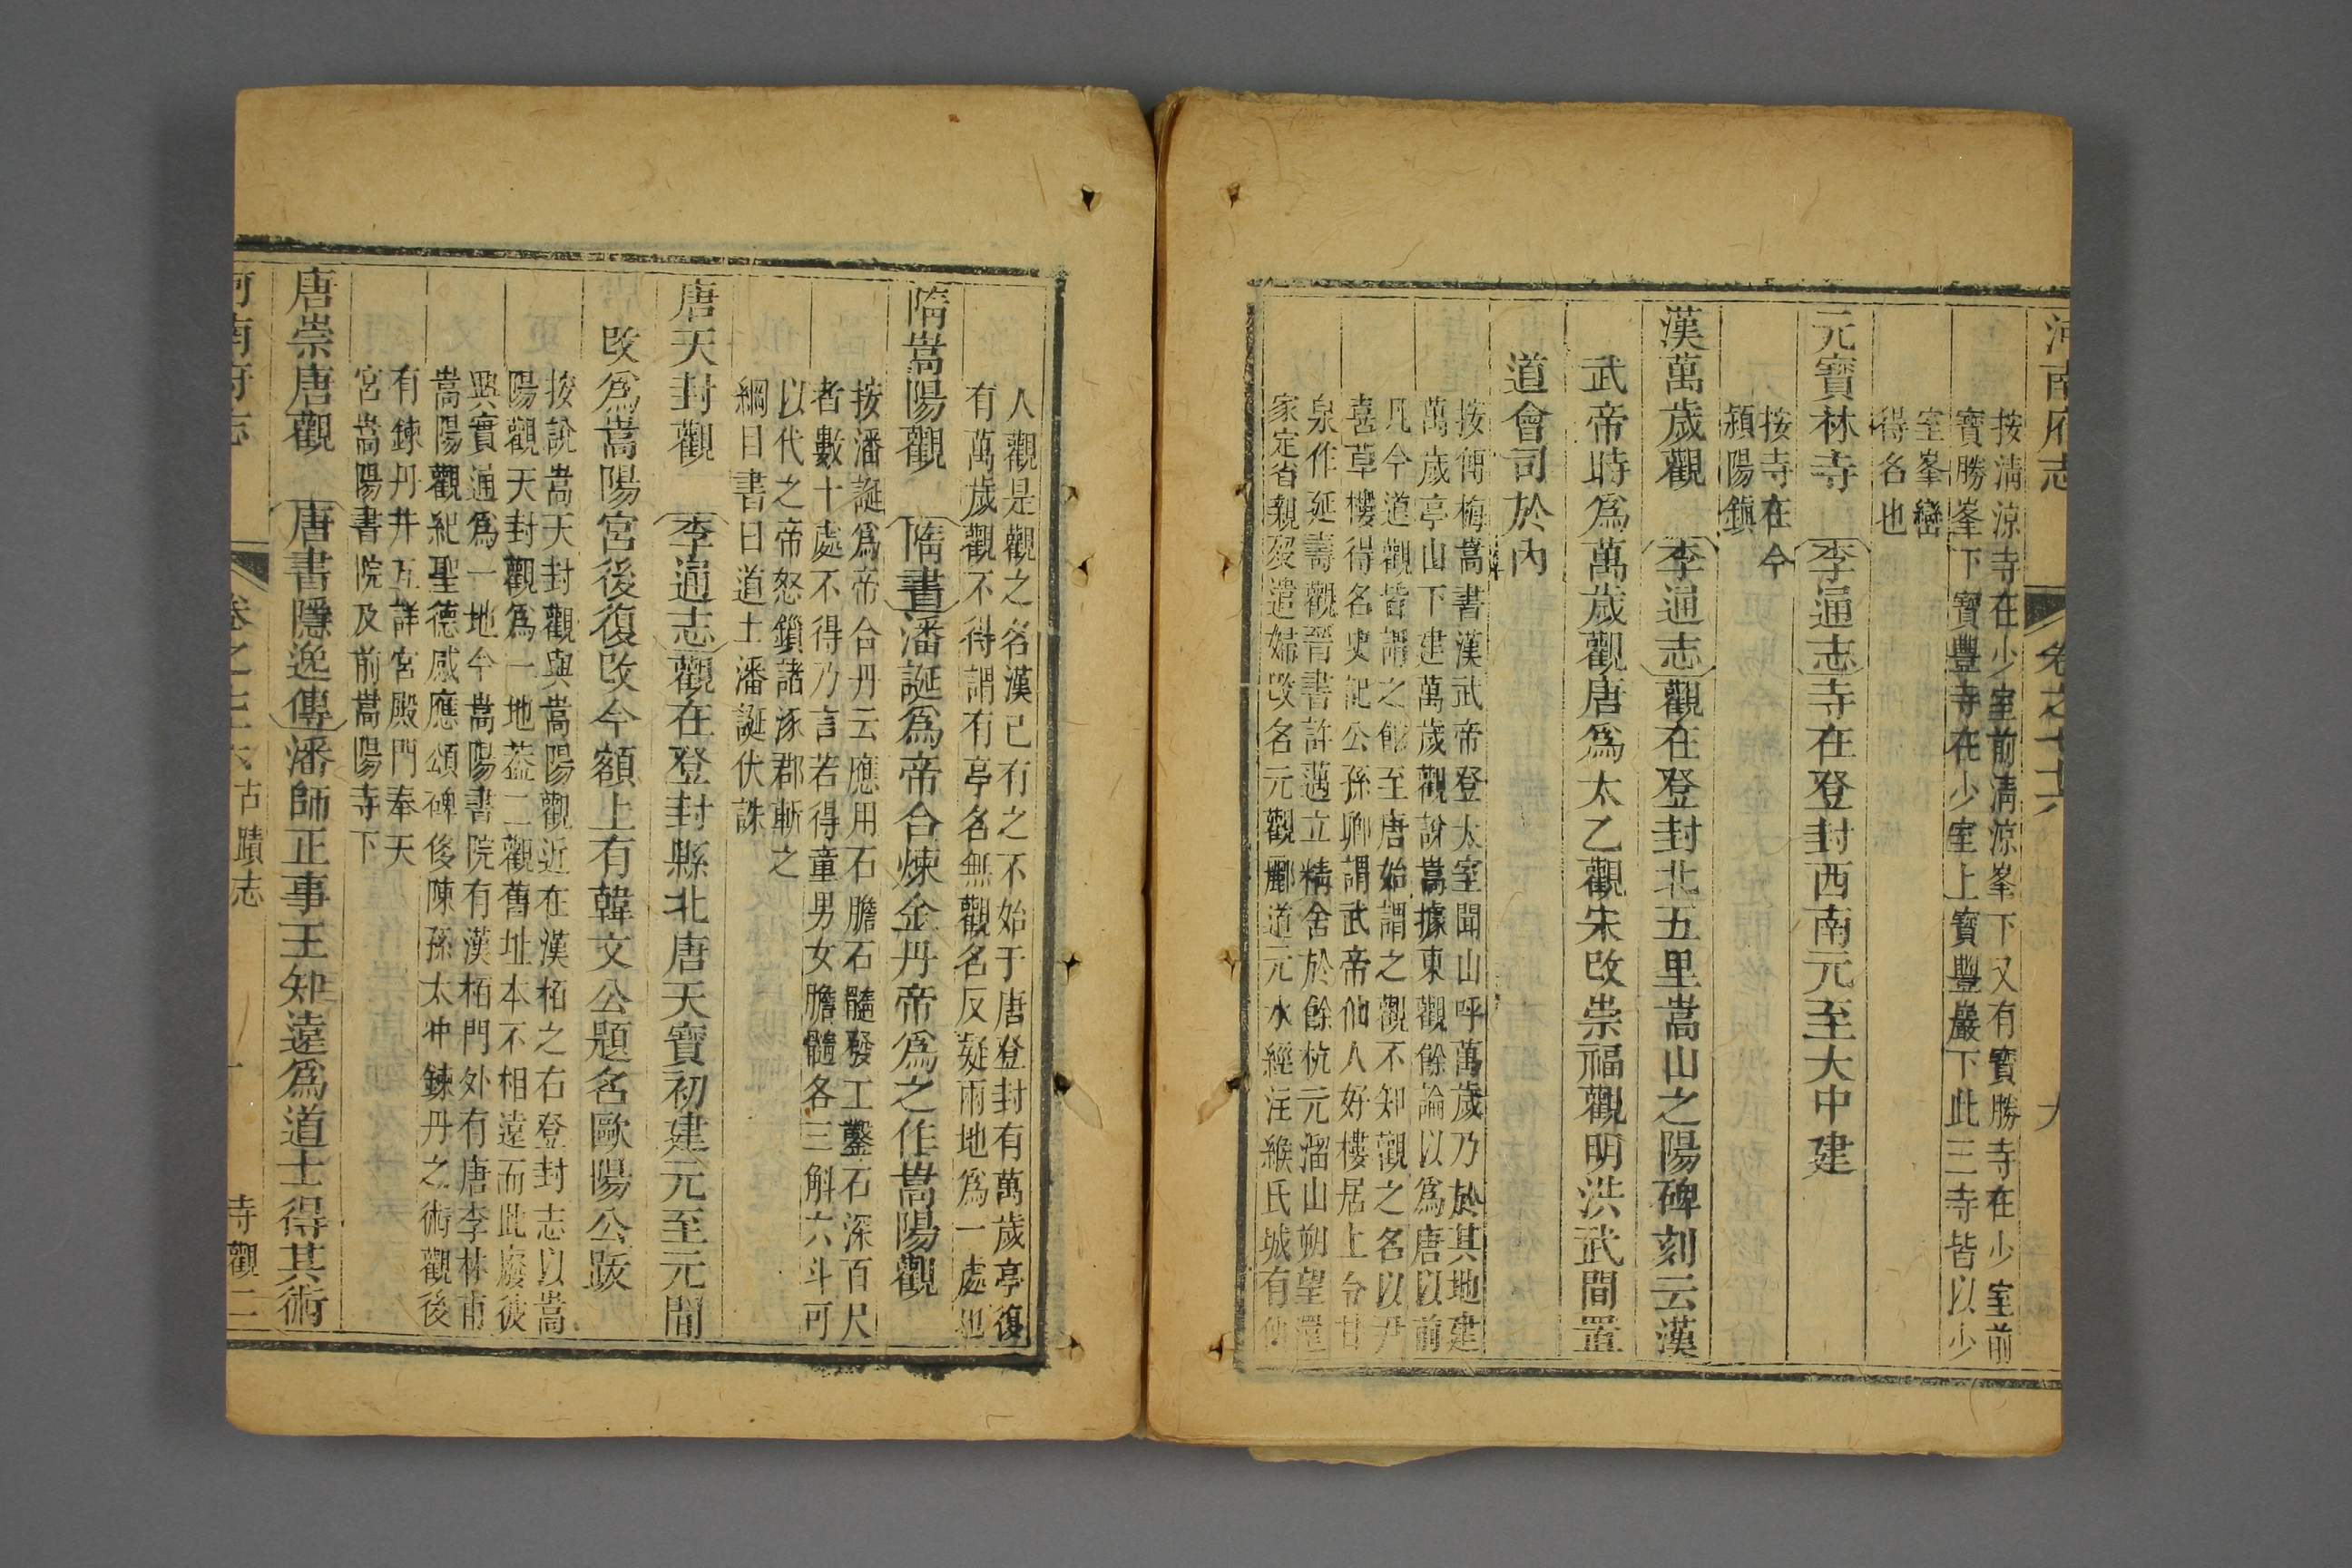 河南府志 卷之七十六 九
按清涼寺在少室前清涼峯下又有寶勝寺在少室前
寶勝峯下寶豐寺在少室上寶豐巖下此三寺皆以少
室峯巒
得名也
元寶林寺 李通志寺在登封西南元至大中建
按寺在今
潁陽鎮
漢萬歲觀 李通志觀在登封北五里嵩山之陽碑刻云漢
武帝時爲萬歲觀唐爲太乙觀宋改崇福觀明洪武間置
道會司於內
按傅梅嵩書漢武帝登太室聞山呼萬歲乃於其地建
萬歲亭山下建萬歲觀說嵩據東觀餘論以爲唐以前
凡今道觀皆謂之館至唐始謂之觀不知觀之名以尹
喜草樓得名史記公孫卿謂武帝仙人好樓居上令甘
泉作延壽觀晉書許邁立精舍於餘杭元溜山朔望還
家定省親歿遣婦改名元觀酈道元水經注緱氏城有仙
人觀是觀之名漢已有之不始于唐登封有萬歲亭復
有萬歲觀不得謂有亭名無觀名反疑兩地爲一處也
隋嵩陽觀 隋書潘誕爲帝合煉金丹帝爲之作嵩陽觀
按潘誕爲帝合丹云應用石膽石髓發工鑿石深百尺
者數十處不得乃言若得童男女膽髓各三斛六斗可
以代之帝怒鎖諸涿郡斬之
綱目書曰道士潘誕伏誅
唐天封觀 李通志觀在登封縣北唐天寶初建元至元間
改爲嵩陽宮後復改今額上有韓文公題名歐陽公跋
按說嵩天封觀與嵩陽觀近在漢栢之右登封志以嵩
陽觀天封觀爲一地葢二觀舊址本不相遠而此廢彼
興實通爲一地今嵩陽書院有漢栢門外有唐李林甫
嵩陽觀紀聖德感應頌碑後陳孫太冲鍊丹之術觀後
有鍊丹井互詳宮殿門奉天
宮嵩陽書院及前嵩陽寺下
唐崇唐觀 唐書隱逸傳潘師正事王知遠爲道士得其術
河南府志 卷之七十六 古蹟志 寺觀二